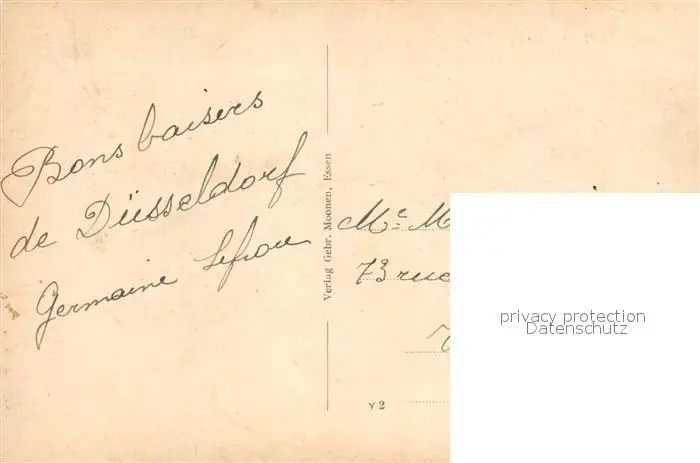 Bons baisers
de Düsseldorf
Germaine
Verlag Gebr. Moonen, Essen
Me M
73 rue
Y 2
privacy protection
Datenschutz